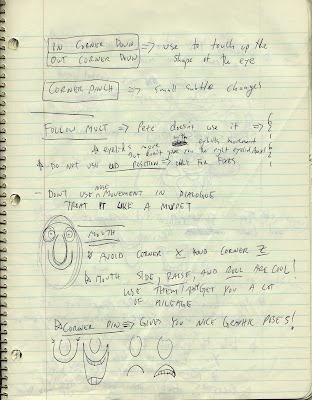 IN CORNER DOWN
OUT CORNER DOWN
=> use to touch up the
shape of the eye
CORNER PINCH => small subtle changes
FOLLOW MULT => Pete doesn't use it =>
eyelids move
but don't give you the right eyelid
* DO NOT USE LID POSITION => ONLY FOR FIXES
- DON'T USE NOSE MOVEMENT IN DIALOGUE
TREAT IT LIKE A MUPPET
MOUTH
* AVOID CORNER X AND CORNER Z
* MOUTH SIDE, RAISE, AND ROLL ARE COOL!
USE THEM! GET YOU A LOT
OF MILEAGE
CORNER PIN => GIVES YOU NICE GRAPHIC POSES!